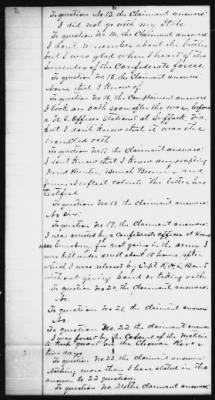 To question No 13, the Claimant answers
I did not go with my State
To question No 14, the Claimant answers
I don't remember about the battles
but I was glad when I heard of the
surrender of the Confederate forces
To question No 15, the Claimant answers
None that I know of
To question No 16, the Claimant answers
I took an oath soon after the war, before
a U.S. Officer Stationed at Suffolk Va.
but I don't know that it was the
oath
To question No 17, the Claimant answers
I don't know that I know any excepting
David
and
To question No 18, the Claimant answers
No Sir
To question No 19, the Claimant answers
I was arrested by a Confederate officer at
near for not going in the army. I
was kept under arrest about 18 hours, after
which I was released by Capt
without giving bond or taking oath
To question No 20, the Claimant answers
No
To question No 21, the Claimant answers
No
To question No 22 the Claimant answers
I was forced by the of the Militia
to
two days
To question No 23, the Claimant answers
Nothing more than I have stated in the
answer to 22 question
To question No 24 the Claimant answers